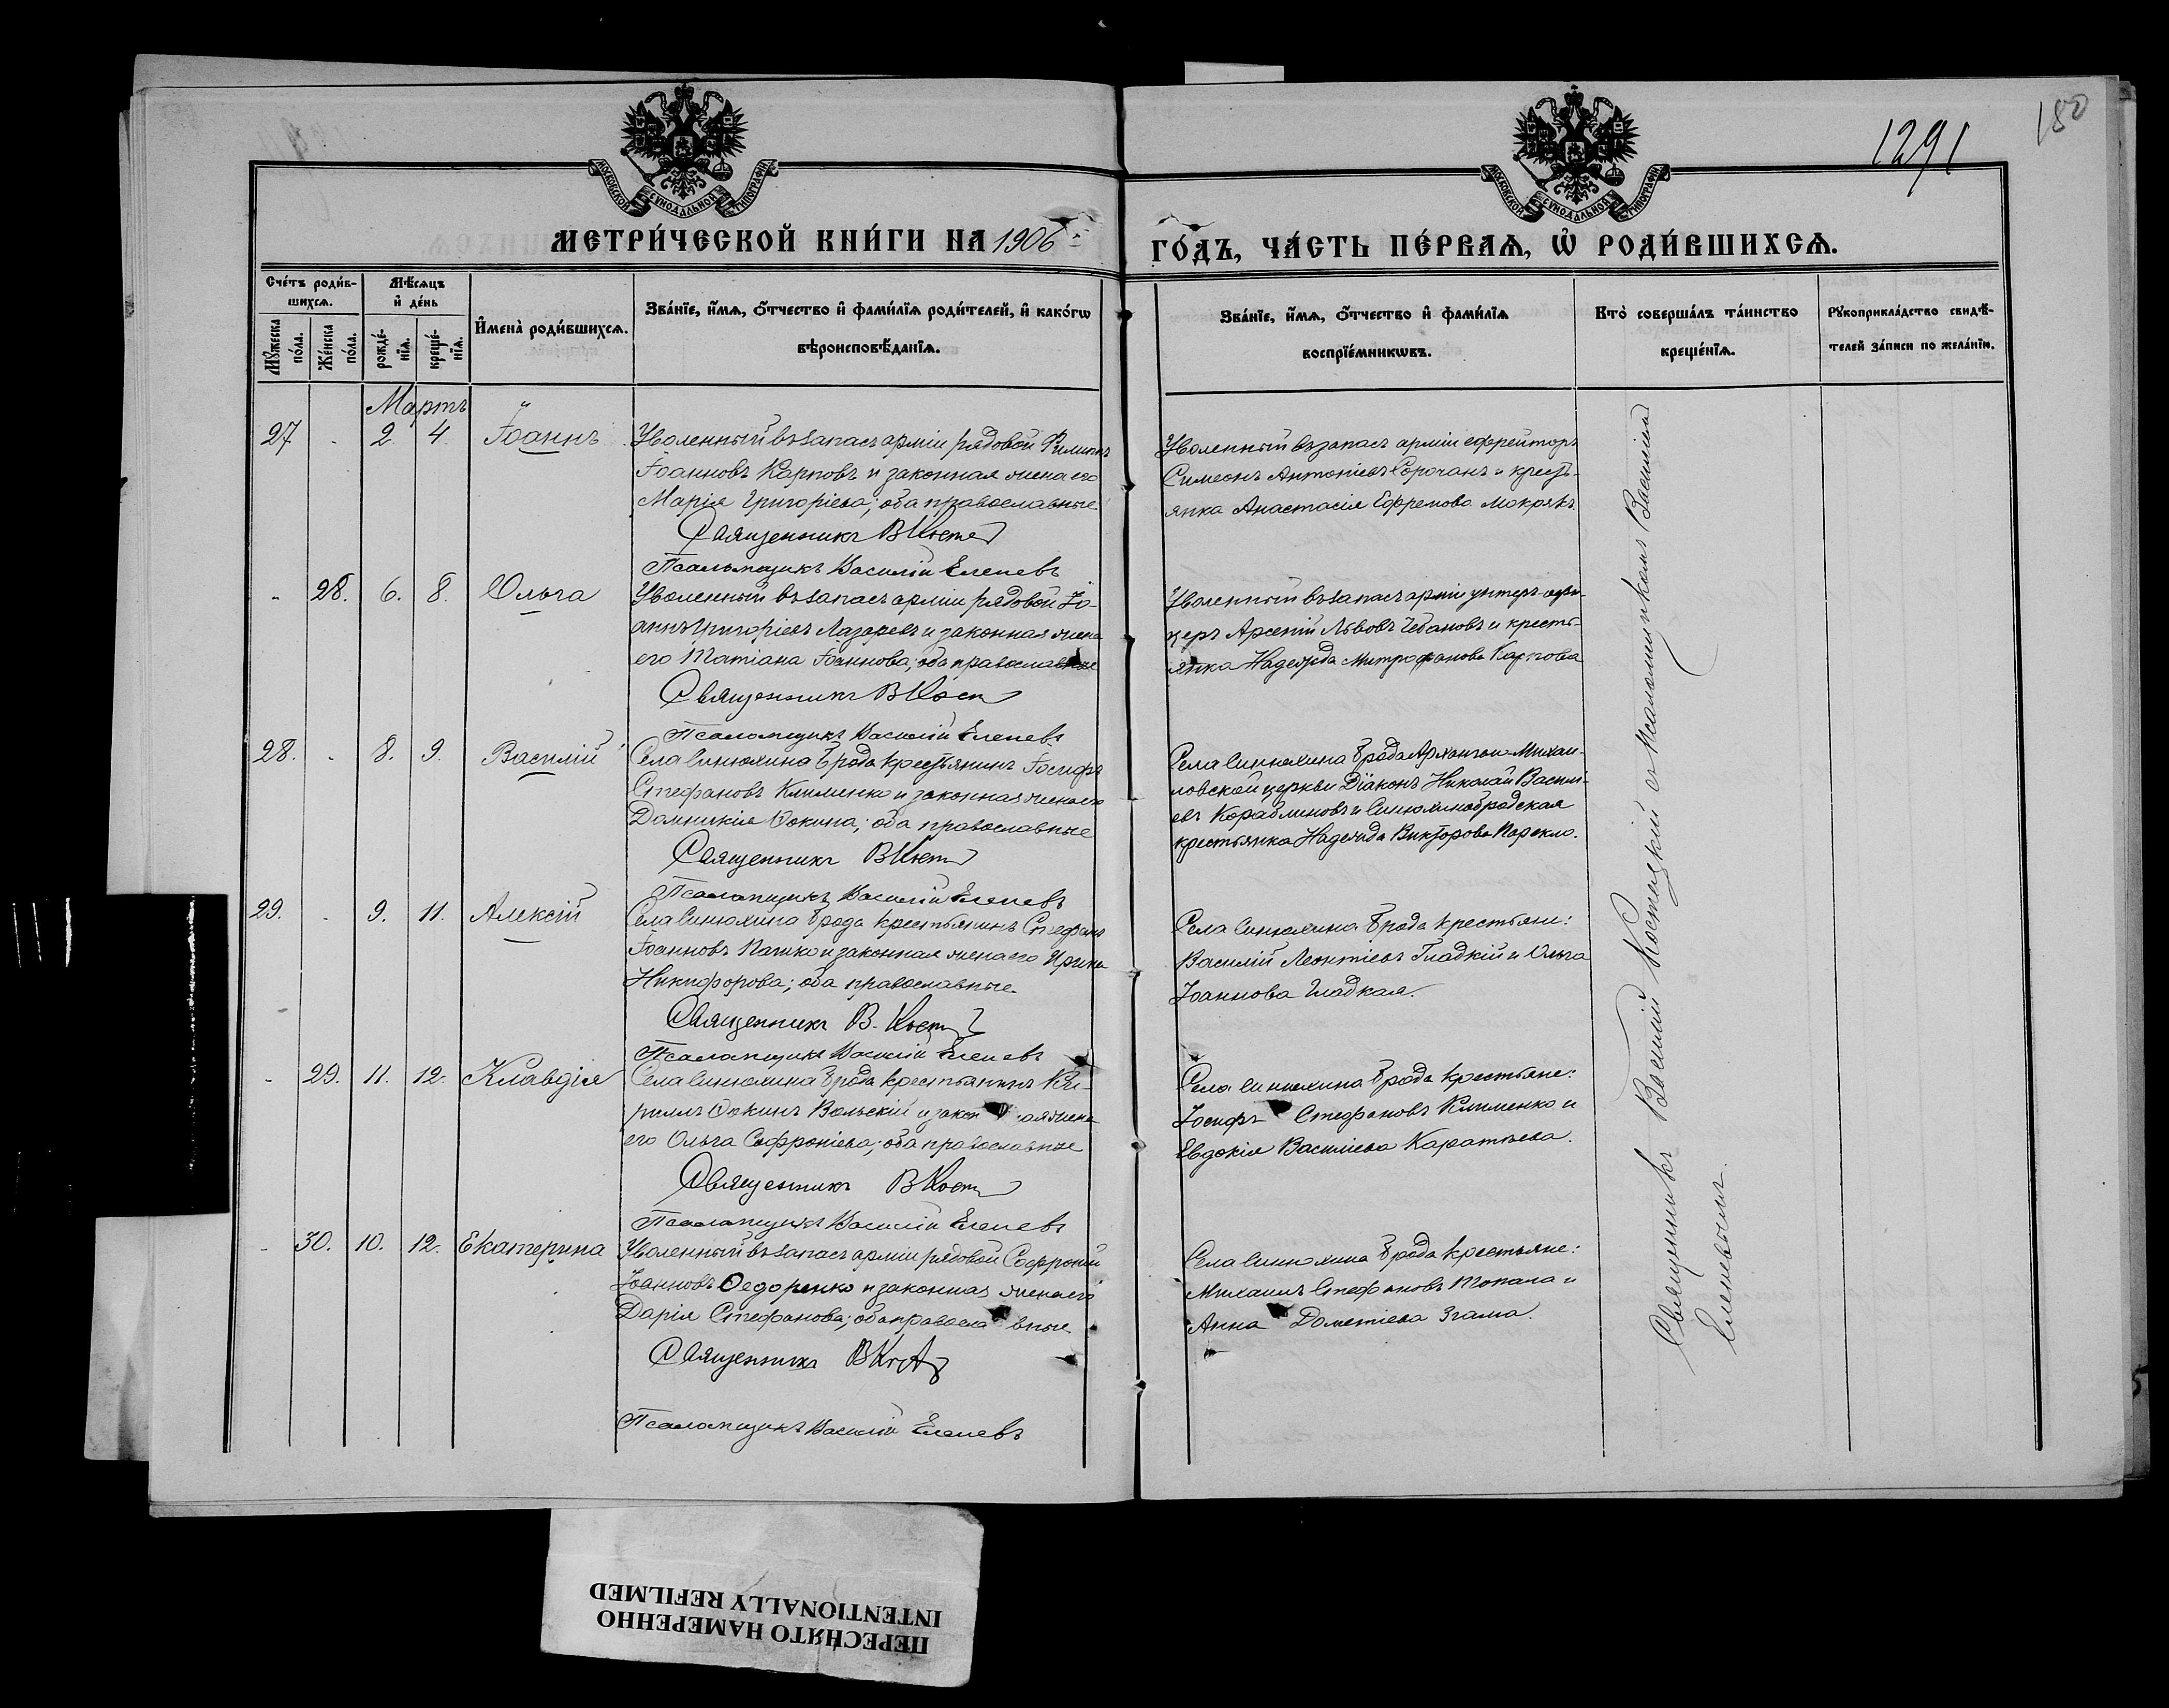 180
1291
МОСКОВСКОЙ СѴНОДАЛЬНОЙ ТИПОГРАФІИ
МОСКОВСКОЙ СѴНОДАЛЬНОЙ ТИПОГРАФІИ
МЕТРИ́ЧЕСКОЙ КНИ́ГИ НА 1906
ГО́ДЪ, ЧА́СТЬ ПЕ́РВАѦ, Ѡ҆ РОДИ́ВШИХСѦ.
Сче́тъ роди́в-
шихсѧ.
Мѣ́сяцъ
и҆ де́нь
Мꙋ́жеска по́ла.
Же́нска по́ла.
рожде́-
нїѧ.
креще́-
нїѧ.
И҆мена̀ роди́вшихсѧ.
Зва́нїе, и҆́мѧ, о҆́тчество и҆ фами́лїѧ роди́телей, и҆ како́гѡ
вѣроисповѣ́данїѧ.
Зва́нїе, и҆́мѧ, о҆́тчество и҆ фами́лїѧ
воспрїе́мникѡвъ.
Кто̀ соверша́лъ та́инство
креще́нїѧ.
Рꙋкоприкла́дство свидѣ́-
телей за́писи по жела́нїю.
Мартъ
27 2 4 Іоаннъ
Уволенный въ запасъ арміи рядовой Филиппъ
Іоанновъ Карповъ и законная жена его
Марія Григоріева; оба православные.
Священникъ В Кост
Псаломщикъ Василій Еленевъ
Уволенный въ запасъ арміи ефрейторъ
Симеонъ Антоніевъ Сорочанъ и кресть-
янка Анастасія Ефремова Мокрякъ.
28. 6. 8. Ольга
Уволенный въ запасъ арміи рядовой Іо-
аннъ Григоріевъ Лазаревъ и законная жена
его Татіана Іоаннова; оба православные
Священникъ В Кост
Псаломщикъ Василій Еленевъ
Уволенный въ запасъ арміи унтеръ-офи-
церъ Арсеній Львовъ Чебановъ и кресть-
янка Надежда Митрофанова Карпова
28. 8. 9. Василій
Села Синюхина Брода крестьянинъ Іосифъ
Стефановъ Клименко и законная жена его
Домникія Ѳокина; оба православные
Священникъ В Кост
Псаломщикъ Василій Еленевъ
Села Синюхина Брода Архангело-Михаи-
ловской церкви Діаконъ Николай Василі-
евъ Кораблиновъ и Синюхинобродская
крестьянка Надежда Викторова
29. 9. 11. Алексій
Села Синюхина Брода крестьянинъ Стефанъ
Іоанновъ и законная жена его Ирина
Никифорова; оба православные.
Священникъ В. Кост
Псаломщикъ Василій Еленевъ
Села Синюхина Брода крестьяне:
Василій Леонтіевъ Гладкій и Ольга
Іоаннова Гладкая.
29. 11. 12. Клавдія
Села Синюхина Брода крестьянинъ Ки-
риллъ Ѳокинъ Вольскій и закон ая жена
его Ольга Софроніева; оба православные
Священникъ В Кост
Псаломщикъ Василій Еленевъ
Села Синюхина Брода крестьяне:
Іосифъ Стефановъ Клименко и
Евдокія Василіева Каратѣева.
30. 10. 12. Екатерина
Уволенный въ запасъ арміи рядовой Софроній
Іоанновъ Ѳедоренко и законная жена его
Дарія Стефанова; оба православные
Священникъ В Кост
Псаломщикъ Василій Еленевъ
Села Синюхина Брода крестьяне:
Михаилъ Стефановъ Топала и
Анна Дометіева Згама.
Священникъ Василій Костецкій съ псаломщикомъ Василіемъ
Еленевымъ.
ПЕРЕСНЯТО НАМЕРЕННО
INTENTIONALLY REFILMED